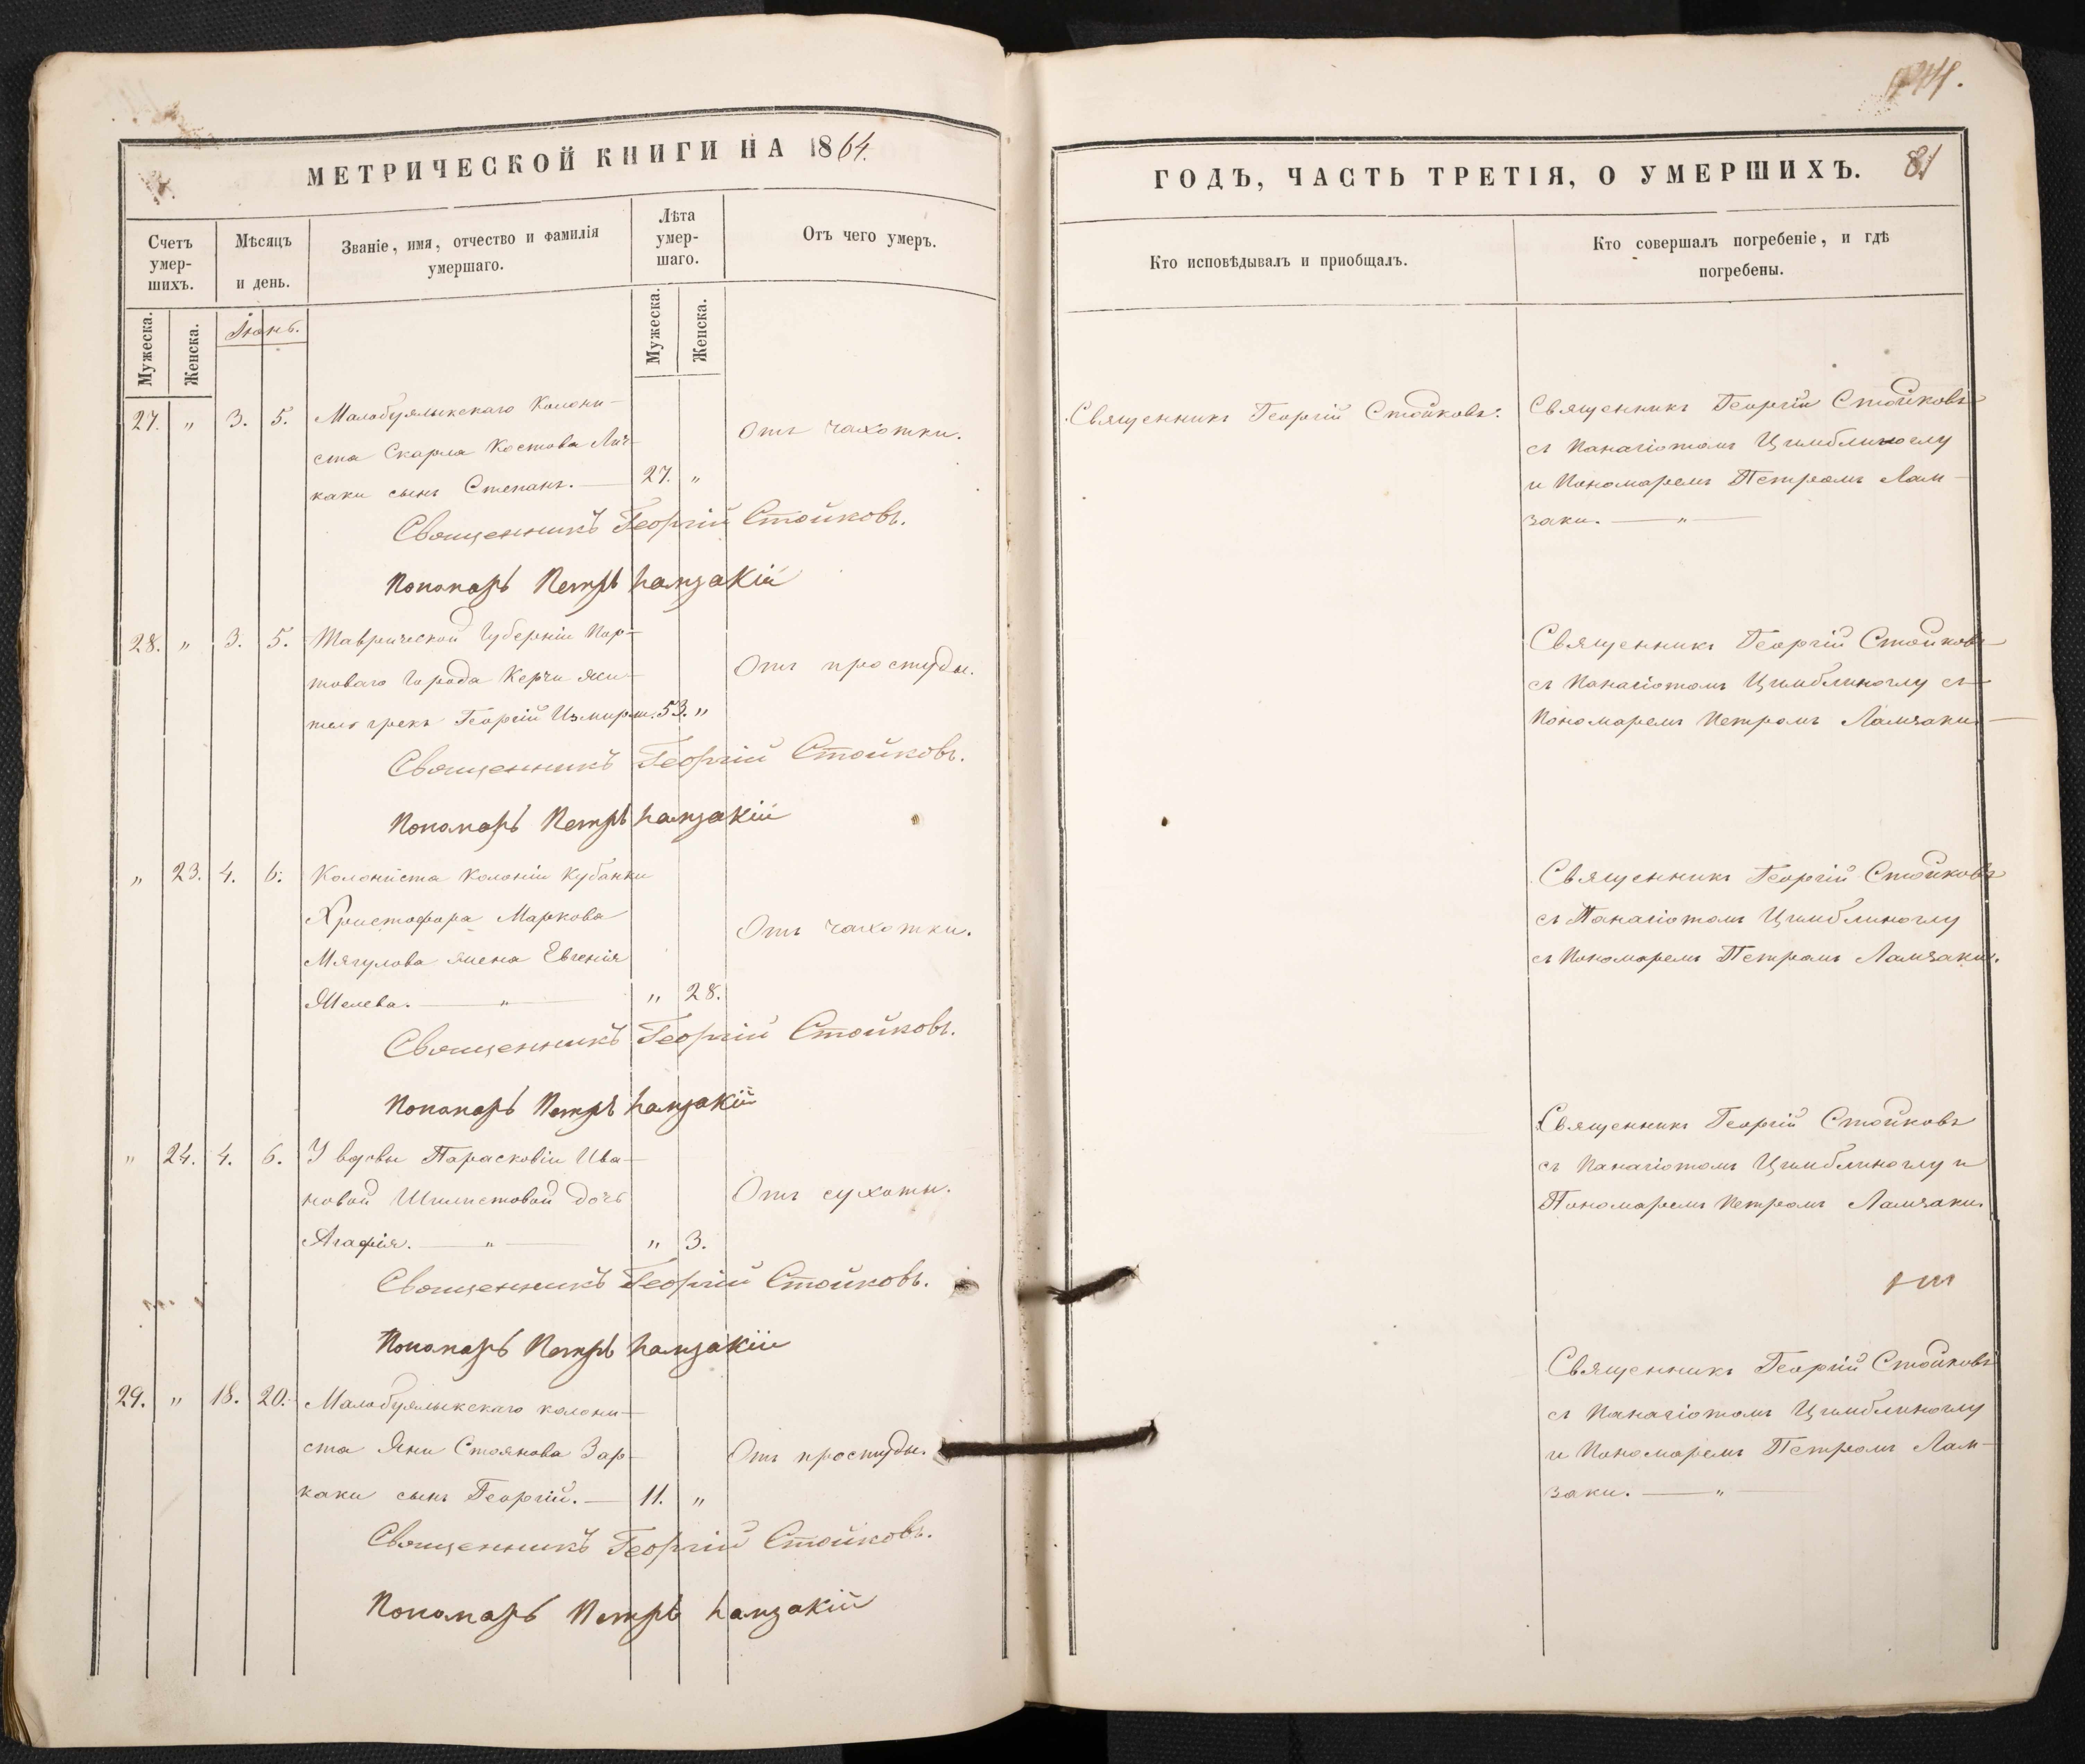 МЕТРИЧЕСКОЙ КНИГИ НА 1864.
Счетъ умер-шихъ.
Мѣсяцъ и день.
Званіе, имя, отчество и фамилія умершаго.
Лѣта умер-шаго.
Отъ чего умеръ.
Мужеска. Женска.
Іюнь.
Мужеска. Женска.
27. " 3. 5. Малобуялыкскаго Колони-
ста Скарла Костова
каки сынъ Степанъ. — 27. "
Отъ чахотки.
Священникъ Георгій Стойковъ.
Пономарь Петръ Ламзакій
28. " 3. 5. Таврической Губерніи Пор-
товаго Города Керчи жи-
тель грекъ Георгій 53. "
Отъ простуды.
Священникъ Георгій Стойковъ.
Пономарь Петръ Ламзакій
" 23. 4. 6. Колониста Колоніи Кубанки
Христофора Маркова
Мягулова жена Евгенія
" 28.
Отъ чахотки.
Священникъ Георгій Стойковъ.
Пономарь Петръ Ламзакій
" 24. 4. 6. У вдовы Парасковіи Ива-
новой дочь
Агафія. — " — " 3.
Отъ сухоты.
Священникъ Георгій Стойковъ.
Пономарь Петръ Ламзакій
29. " 18. 20. Малобуялыкскаго колони-
ста Яни Стоянова Зар-
каки сынъ Георгій. — 11. "
Отъ простуды.
Священникъ Георгій Стойковъ.
Пономарь Петръ Ламзакій
ГОДЪ, ЧАСТЬ ТРЕТІЯ, О УМЕРШИХЪ. 81
Кто исповѣдывалъ и пріобщалъ.
Кто совершалъ погребеніе, и гдѣ
погребены.
Священникъ Георгій Стойковъ.
Священникъ Георгій Стойковъ
съ Панагіотомъ Цимблиноглу
и Пономаремъ Петромъ Лам-
заки. — " —
Священникъ Георгій Стойковъ
съ Панагіотомъ Цимблиноглу съ
Пономаремъ Петромъ Ламзаки
Священникъ Георгій Стойковъ
съ Панагіотомъ Цимблиноглу
съ Пономаремъ Петромъ Ламзаки.
Священникъ Георгій Стойковъ
съ Панагіотомъ Цимблиноглу и
Пономаремъ Петромъ Ламзаки
Священникъ Георгій Стойковъ
съ Панагіотомъ Цимблиноглу
и Пономаремъ Петромъ Лам-
заки. — " —